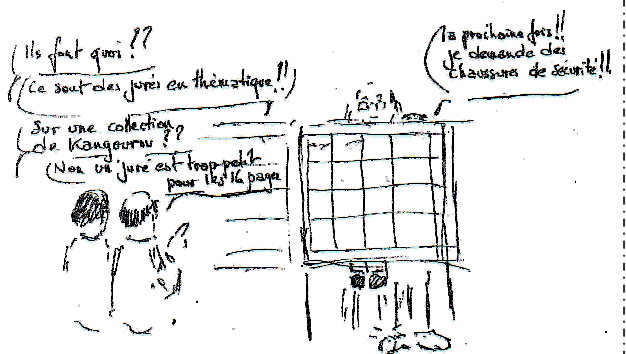 Ils font quoi ??
Ce sont des jurés en thèmatique !!
Sur une collection
de Kangourou ??
Non un juré est trop petit
pour les 16 pages
la prochaine fois !!
je demande des
chaussures de sécurité !!